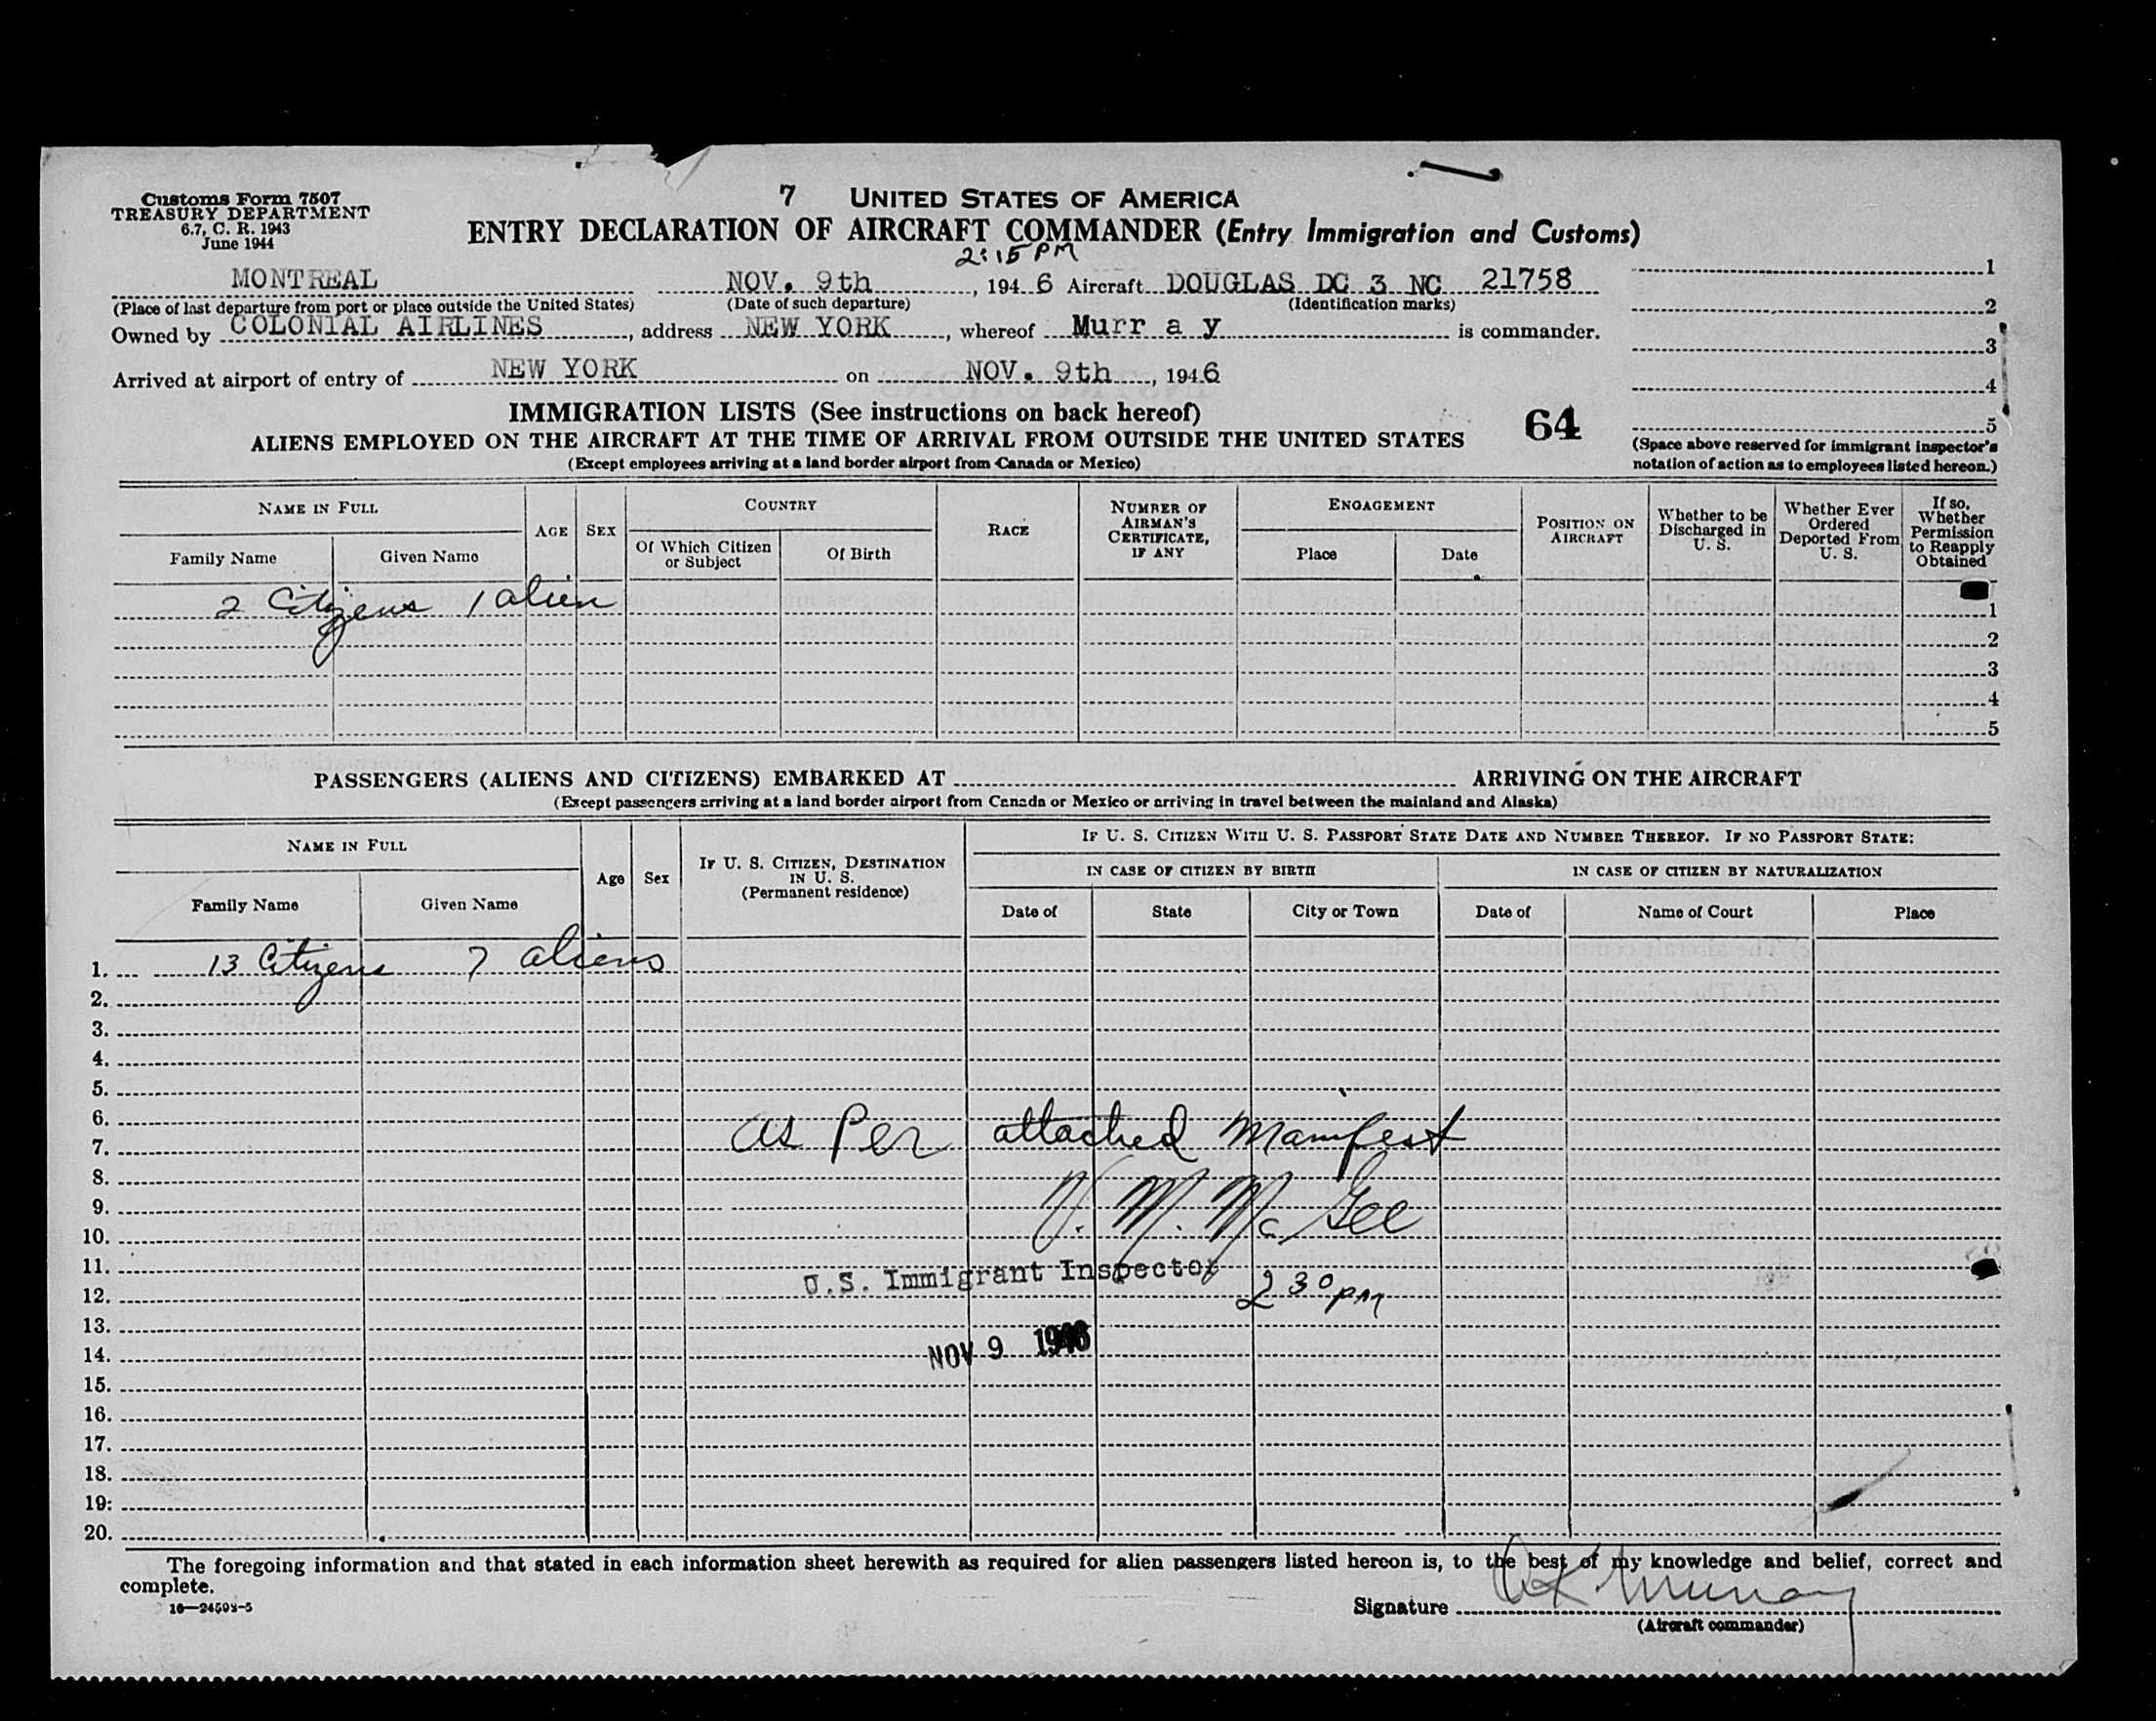 Customs Form 7507
TREASURY DEPARTMENT
6.7, C. R. 1943
June 1944
7 UNITED STATES OF AMERICA
ENTRY DECLARATION OF AIRCRAFT COMMANDER (Entry Immigration and Customs)
2:15 PM
MONTREAL NOV. 9th, 1946 Aircraft DOUGLAS DC 3 NC 21758
(Place of last departure from port or place outside the United States) (Date of such departure) (Identification marks)
Owned by COLONIAL AIRLINES, address NEW YORK, whereof Murr a y is commander.
Arrived at airport of entry of NEW YORK on NOV. 9th, 1946
1
2
3
4
5
(Space above reserved for immigrant inspector's
notation of action as to employees listed hereon.)
IMMIGRATION LISTS (See instructions on back hereof)
64
ALIENS EMPLOYED ON THE AIRCRAFT AT THE TIME OF ARRIVAL FROM OUTSIDE THE UNITED STATES
(Except employees arriving at a land border airport from Canada or Mexico)
NAME IN FULL
Family Name Given Name
AGE SEX
COUNTRY
Of Which Citizen or Subject Of Birth
RACE
NUMBER OF AIRMAN'S CERTIFICATE, IF ANY
ENGAGEMENT
Place Date
POSITION ON AIRCRAFT
Whether to be Discharged in U. S.
Whether Ever Ordered Deported From U. S.
If so, Whether Permission to Reapply Obtained
2 Citizens 1 alien 1
2
3
4
5
PASSENGERS (ALIENS AND CITIZENS) EMBARKED AT ARRIVING ON THE AIRCRAFT
(Except passengers arriving at a land border airport from Canada or Mexico or arriving in travel between the mainland and Alaska)
NAME IN FULL
Family Name Given Name
Age Sex
IF U. S. CITIZEN, DESTINATION IN U. S. (Permanent residence)
IF U. S. CITIZEN WITH U. S. PASSPORT STATE DATE AND NUMBER THEREOF. IF NO PASSPORT STATE:
IN CASE OF CITIZEN BY BIRTH IN CASE OF CITIZEN BY NATURALIZATION
Date of State City or Town Date of Name of Court Place
1. 13 Citizens 7 aliens
2.
3.
4.
5.
6.
7. as Per attached Manifest
8.
9.
10. V. M. Mc Gee
11. U.S. Immigrant Inspector
12. 2 30 PM
13.
14. NOV 9 1946
15.
16.
17.
18.
19.
20.
The foregoing information and that stated in each information sheet herewith as required for alien passengers listed hereon is, to the best of my knowledge and belief, correct and
complete.
16—24598-5
Signature Murray
(Aircraft commander)